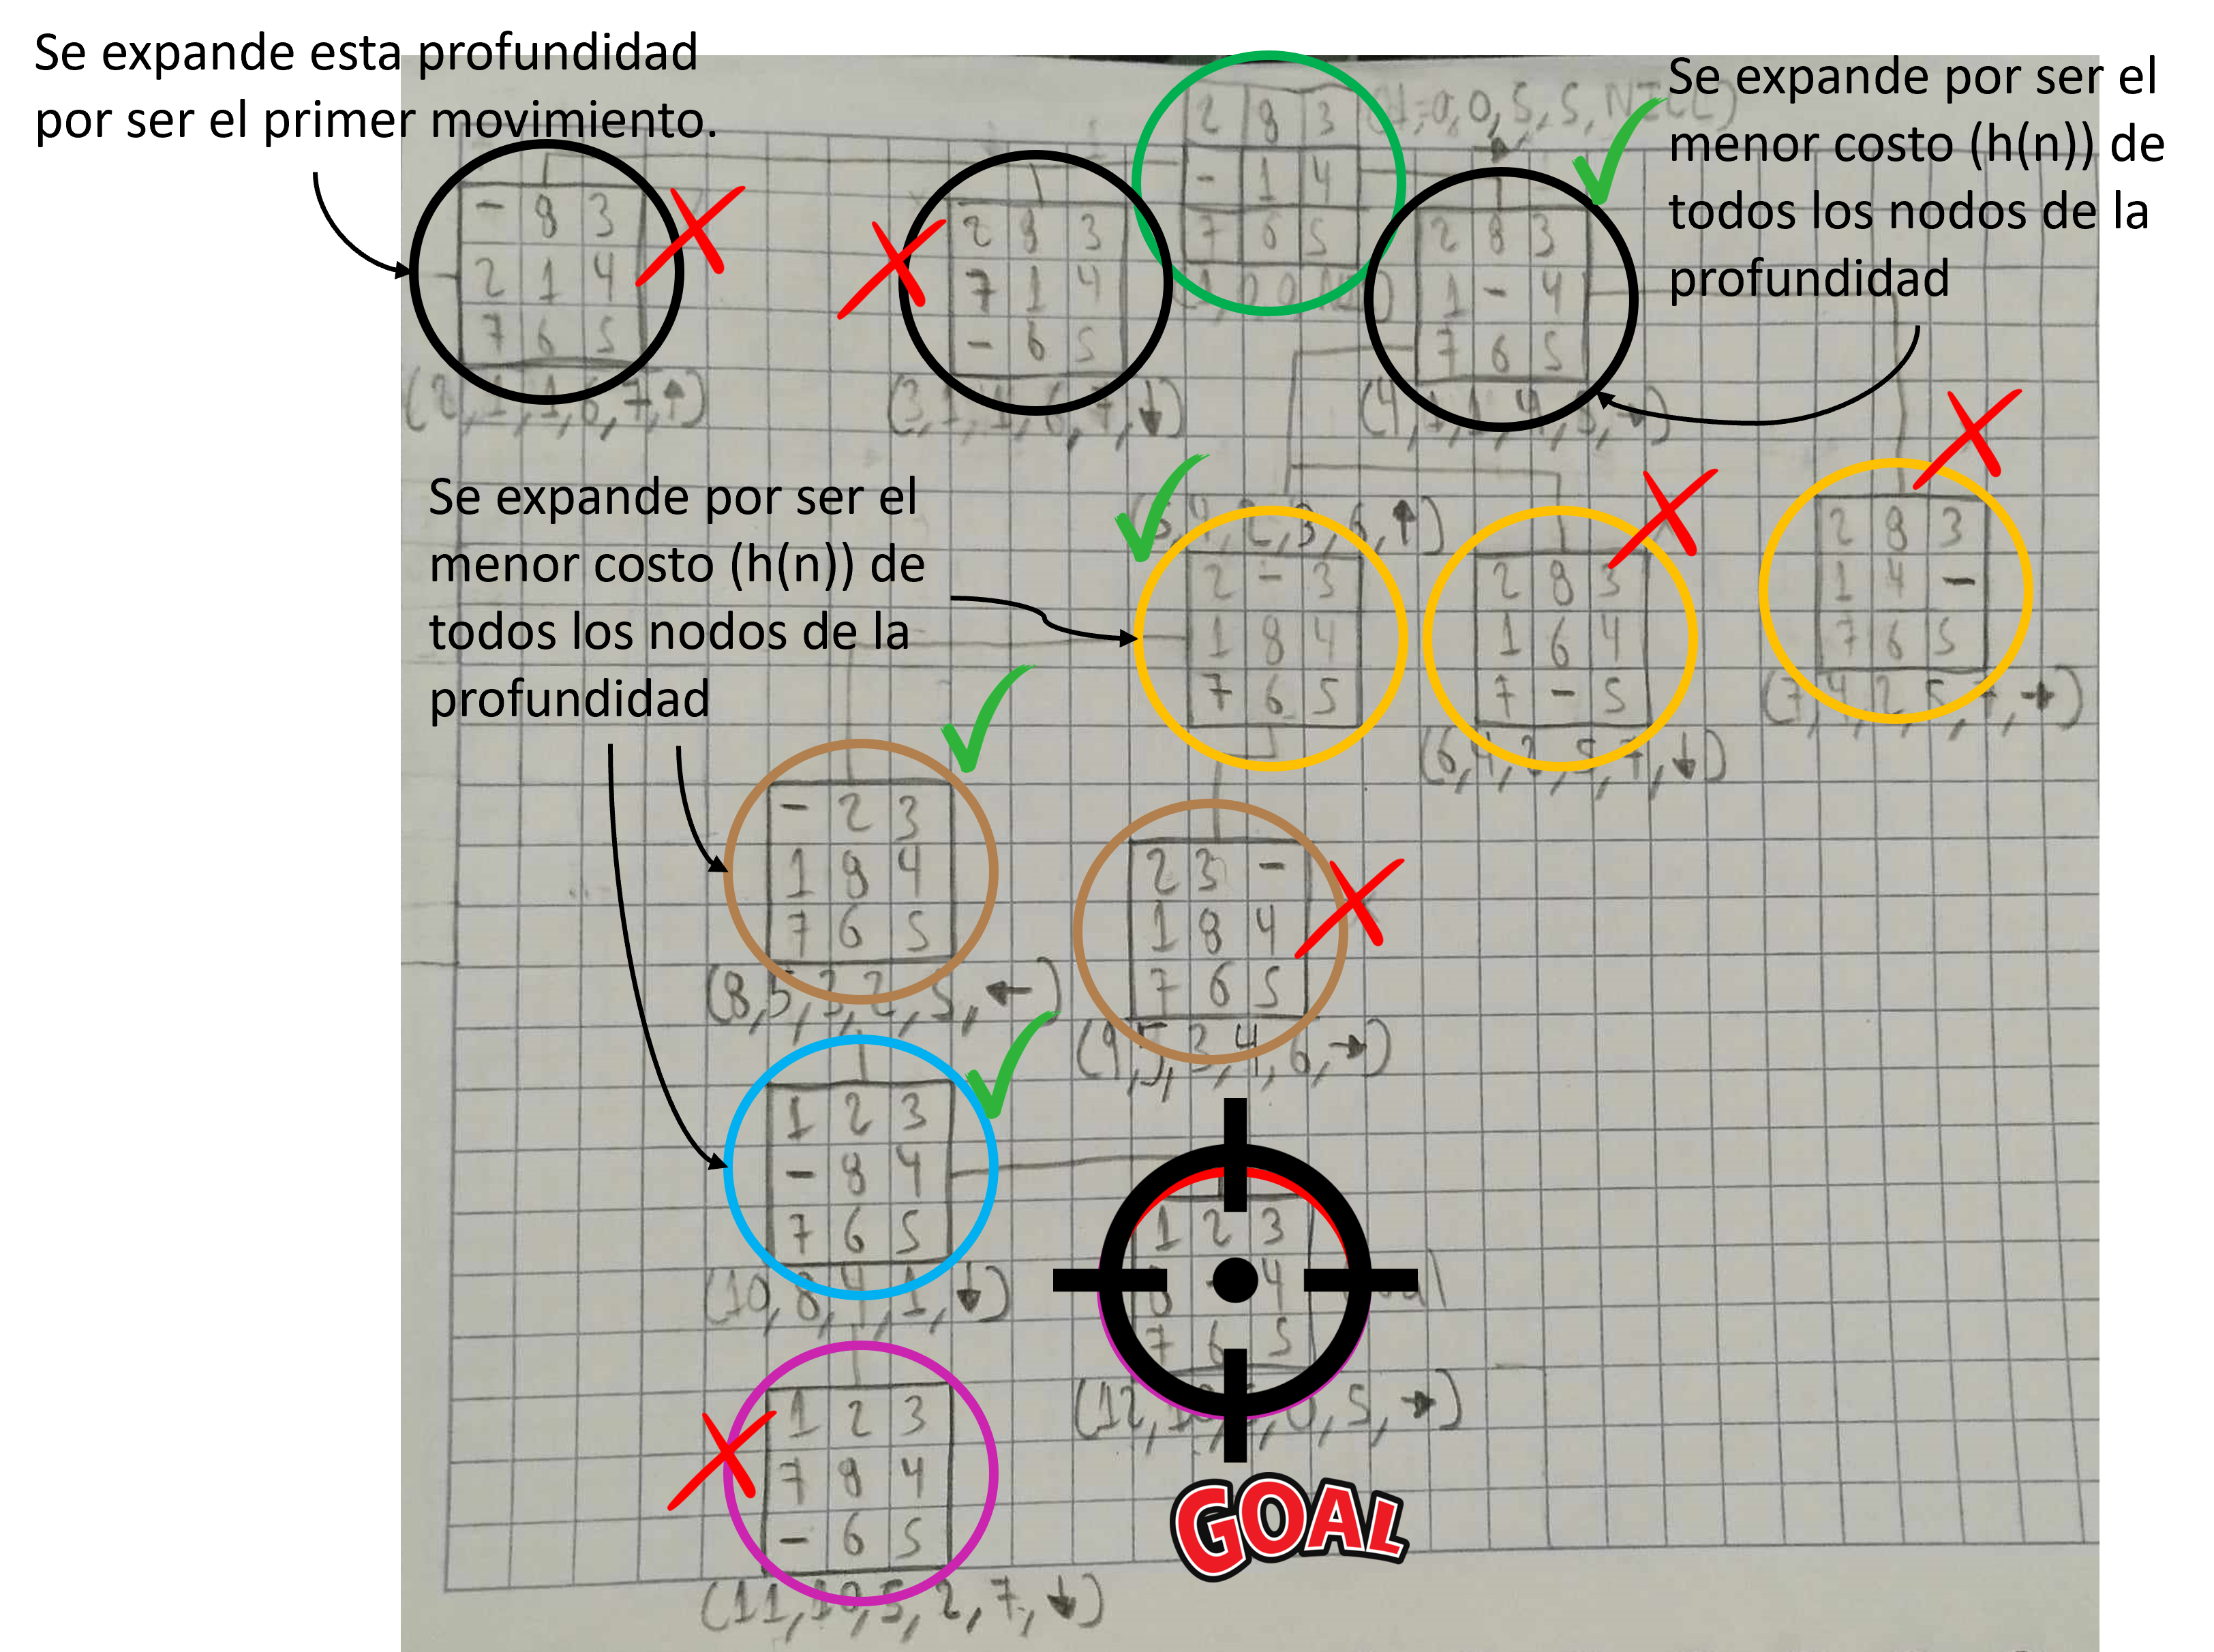 Se expande esta profundidad
por ser el primer movimiento.
Se expande por ser el
menor costo (h(n)) de
todos los nodos de la
profundidad
2 8 3
- 1 4
7 6 5
- 8 3
2 1 4
7 6 5
(2,1,1,6,7,↑)
2 8 3
7 1 4
- 6 5
(3,1,1,6,7,↓)
2 8 3
1 - 4
7 6 5
Se expande por ser el
menor costo (h(n)) de
todos los nodos de la
profundidad
2 - 3
1 8 4
7 6 5
2 8 3
1 6 4
7 - 5
2 8 3
1 4 -
7 6 5
(7,4,2,5,7,→)
- 2 3
1 8 4
7 6 5
(8,5,3,2,5,←)
2 3 -
1 8 4
7 6 5
(9,5,3,4,6,→)
1 2 3
- 8 4
7 6 5
(10,8,4,1,↓)
1 2 3
8 - 4
7 6 5
1 2 3
7 8 4
- 6 5
(11,10,5,2,7,↓)
GOAL